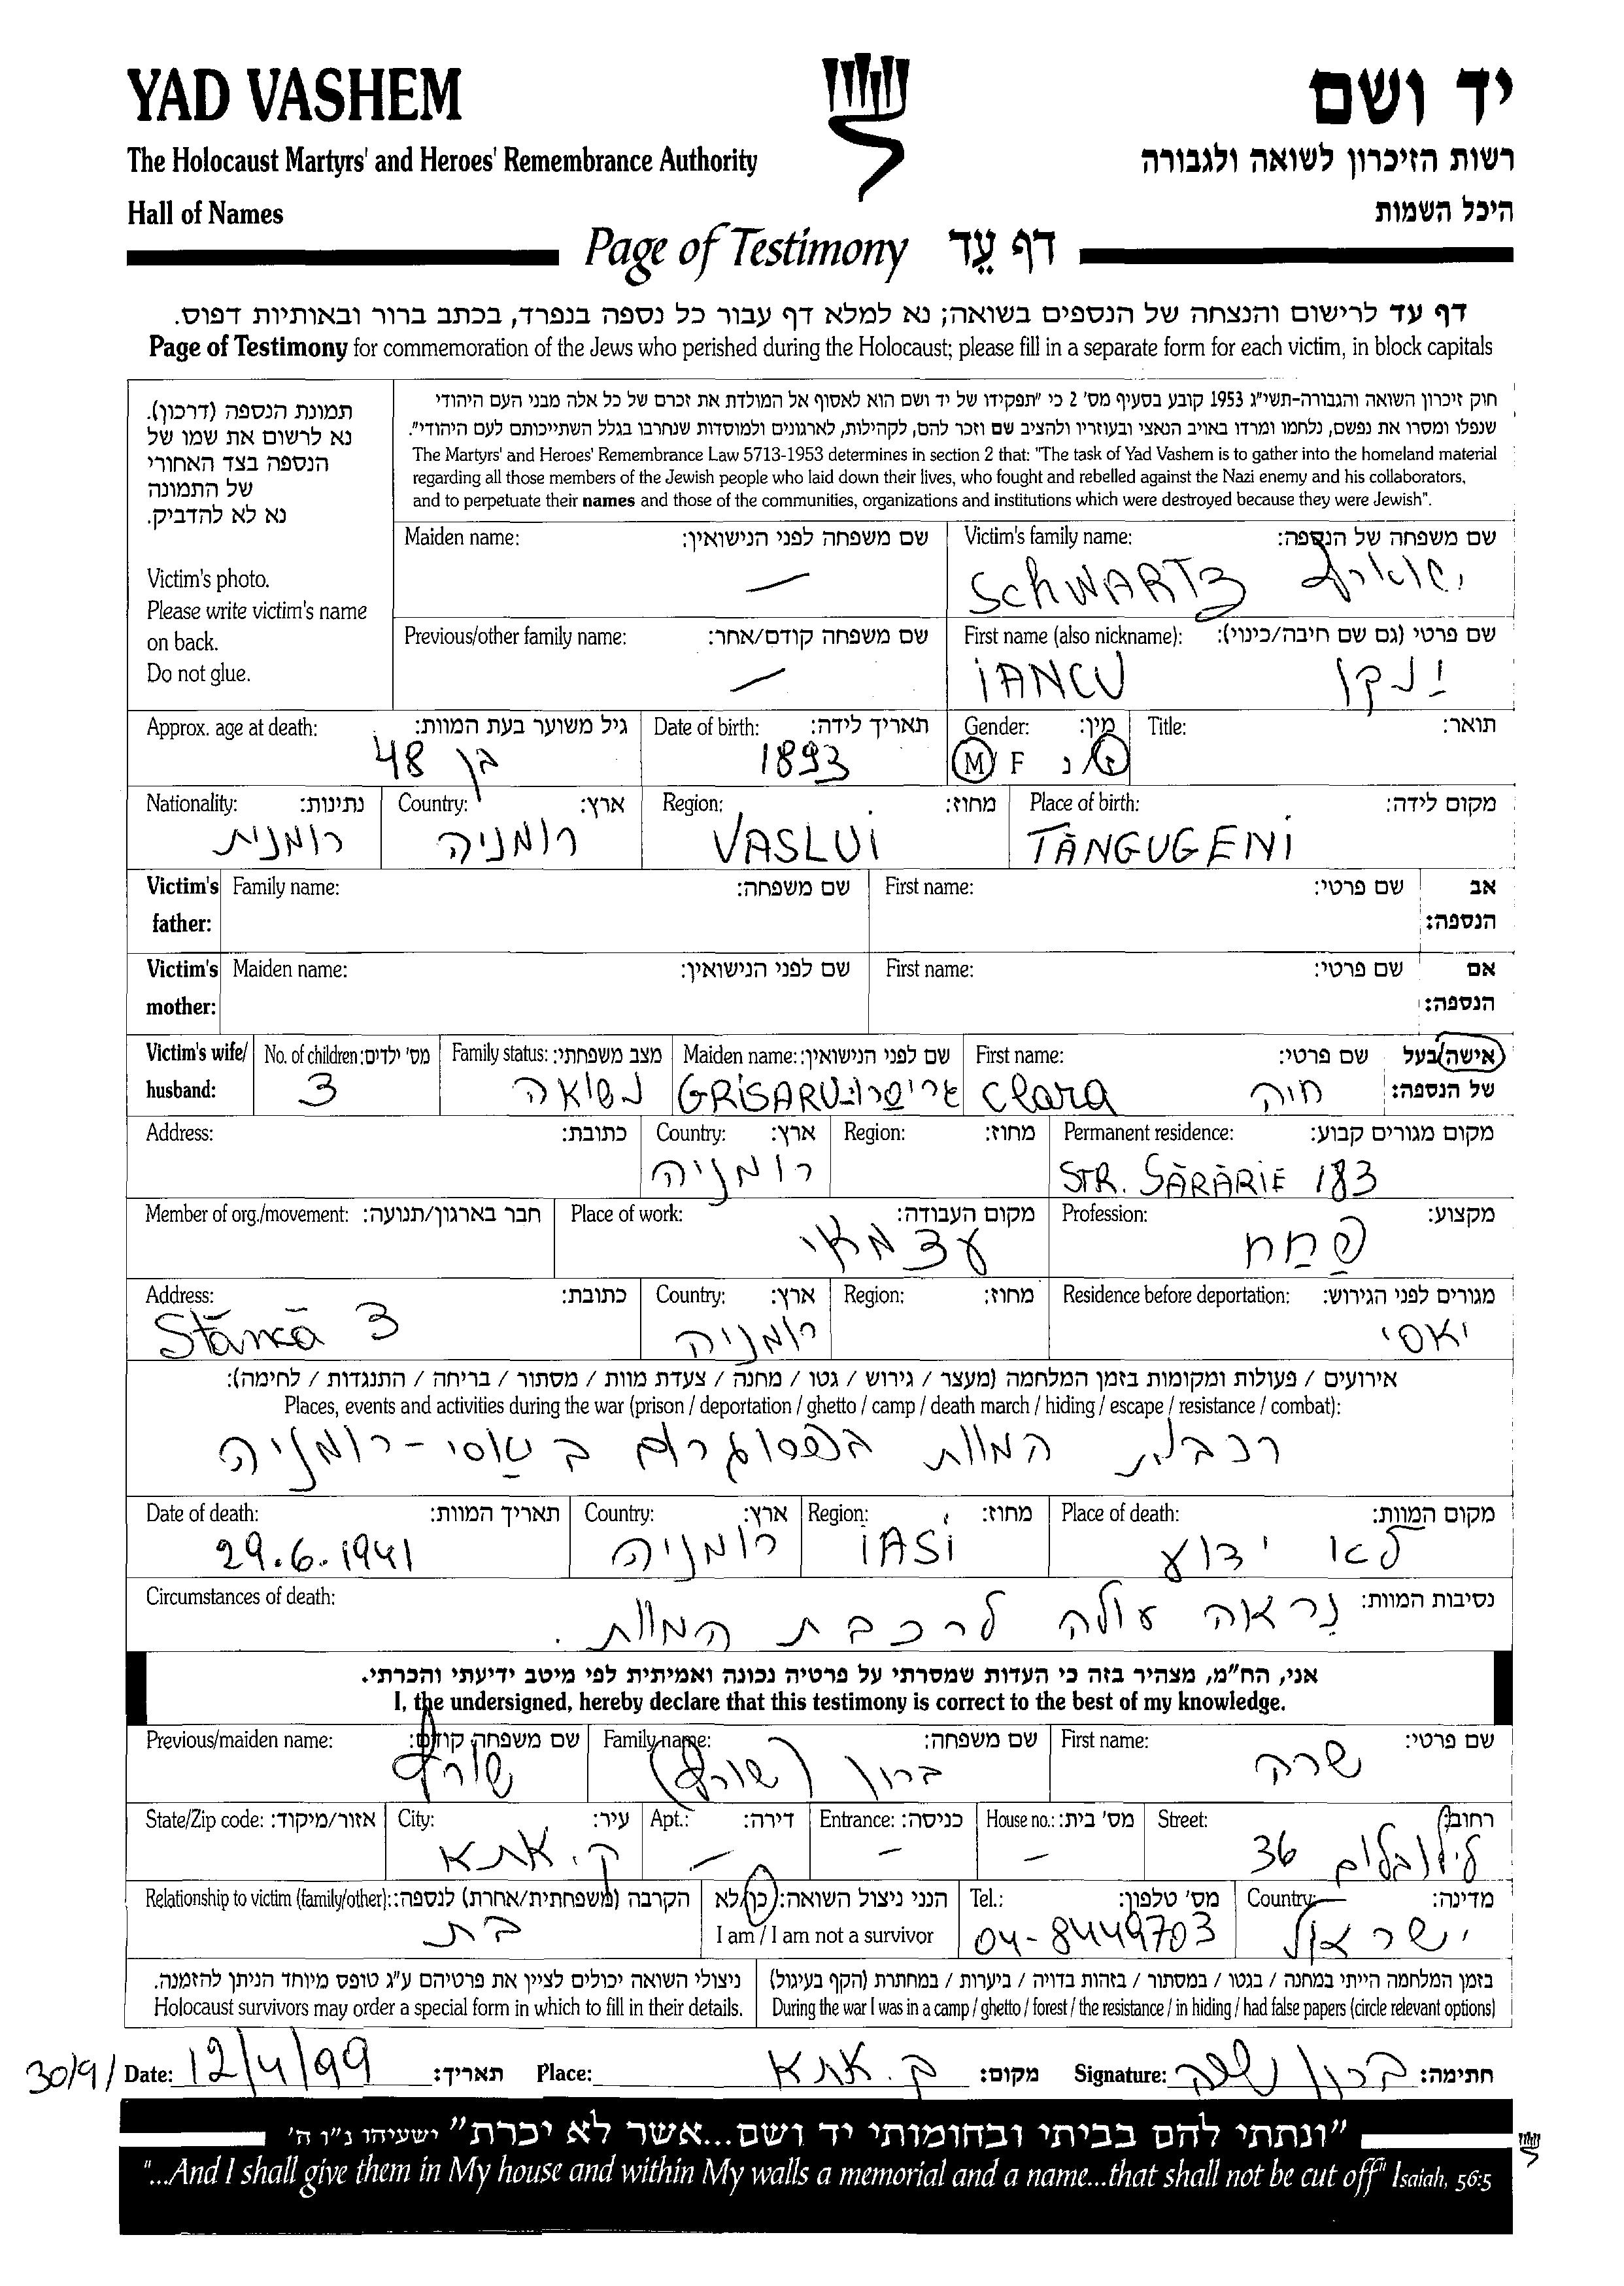 YAD VASHEM
יד ושם
The Holocaust Martyrs' and Heroes' Remembrance Authority
רשות הזיכרון לשואה ולגבורה
Hall of Names
היכל השמות
Page of Testimony דף עֵד
דף עד לרישום והנצחה של הנספים בשואה; נא למלא דף עבור כל נספה בנפרד, בכתב ברור ובאותיות דפוס.
Page of Testimony for commemoration of the Jews who perished during the Holocaust; please fill in a separate form for each victim, in block capitals
תמונת הנספה (דרכון).
נא לרשום את שמו של
הנספה בצד האחורי
של התמונה
נא לא להדביק.
Victim's photo.
Please write victim's name
on back.
Do not glue.
חוק זיכרון השואה והגבורה-תשי"ג 1953 קובע בסעיף מס' 2 כי "תפקידו של יד ושם הוא לאסוף אל המולדת את זכרם של כל אלה מבני העם היהודי
שנפלו ומסרו את נפשם, נלחמו ומרדו באויב הנאצי ובעוזריו ולהציב שם וזכר להם, לקהילות, לארגונים ולמוסדות שנחרבו בגלל השתייכותם לעם היהודי".
The Martyrs' and Heroes' Remembrance Law 5713-1953 determines in section 2 that: "The task of Yad Vashem is to gather into the homeland material
regarding all those members of the Jewish people who laid down their lives, who fought and rebelled against the Nazi enemy and his collaborators,
and to perpetuate their names and those of the communities, organizations and institutions which were destroyed because they were Jewish".
Maiden name: שם משפחה לפני הנישואין: Victim's family name: שם משפחה של הנספה:
— SCHWARTZ
Previous/other family name: שם משפחה קודם/אחר: First name (also nickname): שם פרטי (גם שם חיבה/כינוי):
— IANCU ינקו
Approx. age at death: גיל משוער בעת המוות: Date of birth: תאריך לידה: Gender: מין: Title: תואר:
48 בן 1893 M F ז/נ
Nationality: נתינות: Country: ארץ: Region: מחוז: Place of birth: מקום לידה:
רומנית רומניה VASLUI TĂNGUGENI
Victim's father: Family name: שם משפחה: First name: שם פרטי: אב הנספה:
Victim's mother: Maiden name: שם לפני הנישואין: First name: שם פרטי: אם הנספה:
Victim's wife/ husband: No. of children: מס' ילדים: Family status: מצב משפחתי: Maiden name: שם לפני הנישואין: First name: שם פרטי: אישה/בעל של הנספה:
3 נשואה GRISARU Clara חיה
Address: כתובת: Country: ארץ: Region: מחוז: Permanent residence: מקום מגורים קבוע:
רומניה STR. SĂRĂRIE 183
Member of org./movement: חבר בארגון/תנועה: Place of work: מקום העבודה: Profession: מקצוע:
עצמאי פחח
Address: כתובת: Country: ארץ: Region: מחוז: Residence before deportation: מגורים לפני הגירוש:
Stănca 3 רומניה יאסי
אירועים / פעולות ומקומות בזמן המלחמה (מעצר / גירוש / גטו / מחנה / צעדת מוות / מסתור / בריחה / התנגדות / לחימה):
Places, events and activities during the war (prison / deportation / ghetto / camp / death march / hiding / escape / resistance / combat):
רכבת המוות רומניה
Date of death: תאריך המוות: Country: ארץ: Region: מחוז: Place of death: מקום המוות:
29.6.1941 רומניה IASI לא ידוע
Circumstances of death: נסיבות המוות:
נראה עולה לרכבת המוות.
אני, הח"מ, מצהיר בזה כי העדות שמסרתי על פרטיה נכונה ואמיתית לפי מיטב ידיעתי והכרתי.
I, the undersigned, hereby declare that this testimony is correct to the best of my knowledge.
Previous/maiden name: שם משפחה קודם: Family name: שם משפחה: First name: שם פרטי:
שורץ ברון (שורץ) שרה
State/Zip code: אזור/מיקוד: City: עיר: Apt.: דירה: Entrance: כניסה: House no.: מס' בית: Street: רחוב:
ק. אתא — — — 36
Relationship to victim (family/other): הקרבה (משפחתית/אחרת) לנספה: הנני ניצול השואה: כן/לא Tel.: מס' טלפון: Country: מדינה:
בת I am / I am not a survivor 04-8449703 ישראל
ניצולי השואה יכולים לציין את פרטיהם ע"ג טופס מיוחד הניתן להזמנה. בזמן המלחמה הייתי במחנה / בגטו / במסתור / בזהות בדויה / ביערות / במחתרת (הקף בעיגול)
Holocaust survivors may order a special form in which to fill in their details. During the war I was in a camp / ghetto / forest / the resistance / in hiding / had false papers (circle relevant options)
30/9/ Date: 12/4/99 תאריך: Place: ק. אתא מקום: Signature: ברון שרה חתימה:
"ונתתי להם בביתי ובחומותי יד ושם...אשר לא יכרת" ישעיהו נ"ו ה'
"...And I shall give them in My house and within My walls a memorial and a name...that shall not be cut off" Isaiah, 56:5